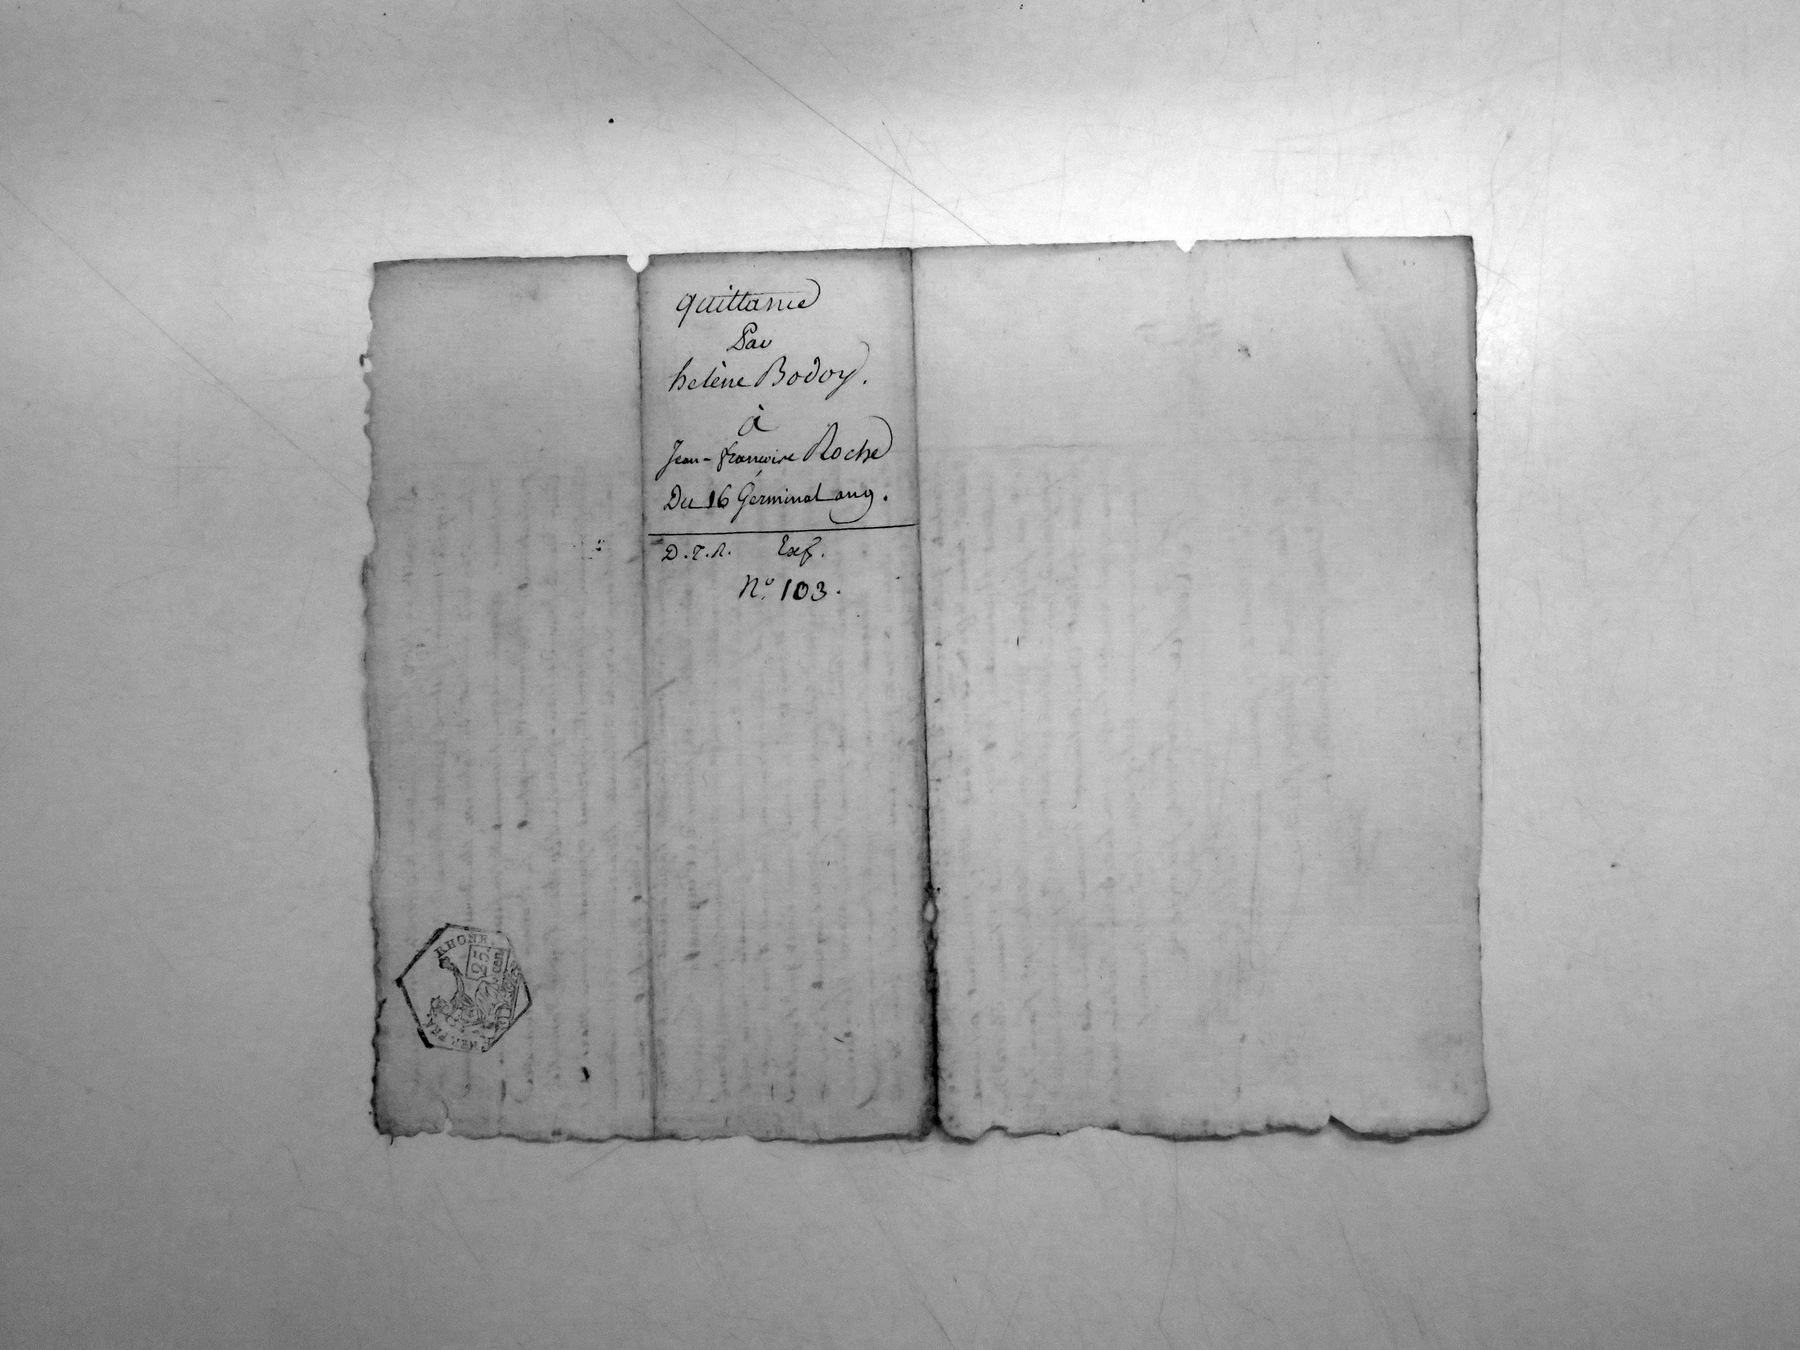 quittance
Par
helène Bodoy.
à
Jean-françoise Roche
Du 16 Germinal an 9.
D.T.R. Exp.
N.º 103.
RHONE.
25
cen
REP. FRA.